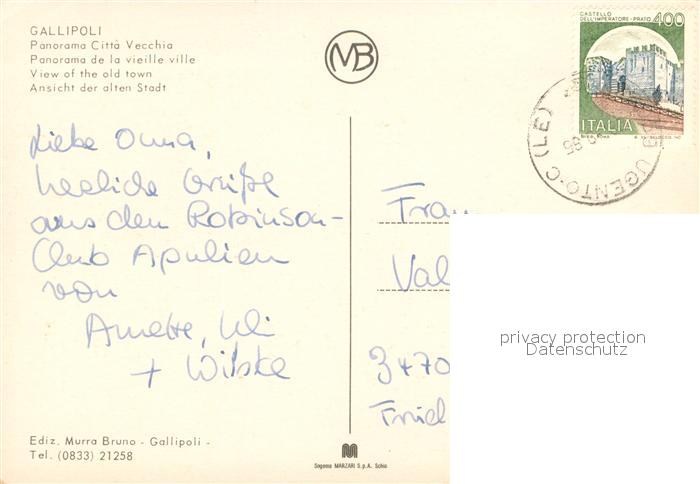 GALLIPOLI
Panorama Città Vecchia
Panorama de la vieille ville
View of the old town
Ansicht der alten Stadt
MB
CASTELLO
DELL'IMPERATORE - PRATO 400
ITALIA
UGENTO-C (LE)
Liebe Oma,
herzliche Grüße
aus dem Robinson-
Club Apulien
von
Annette, Uli
+ Wibke
Frau
Val
3470
Fried
privacy protection
Datenschutz
Ediz. Murra Bruno - Gallipoli -
Tel. (0833) 21258
Sagoma MARZARI S.p.A. Schio